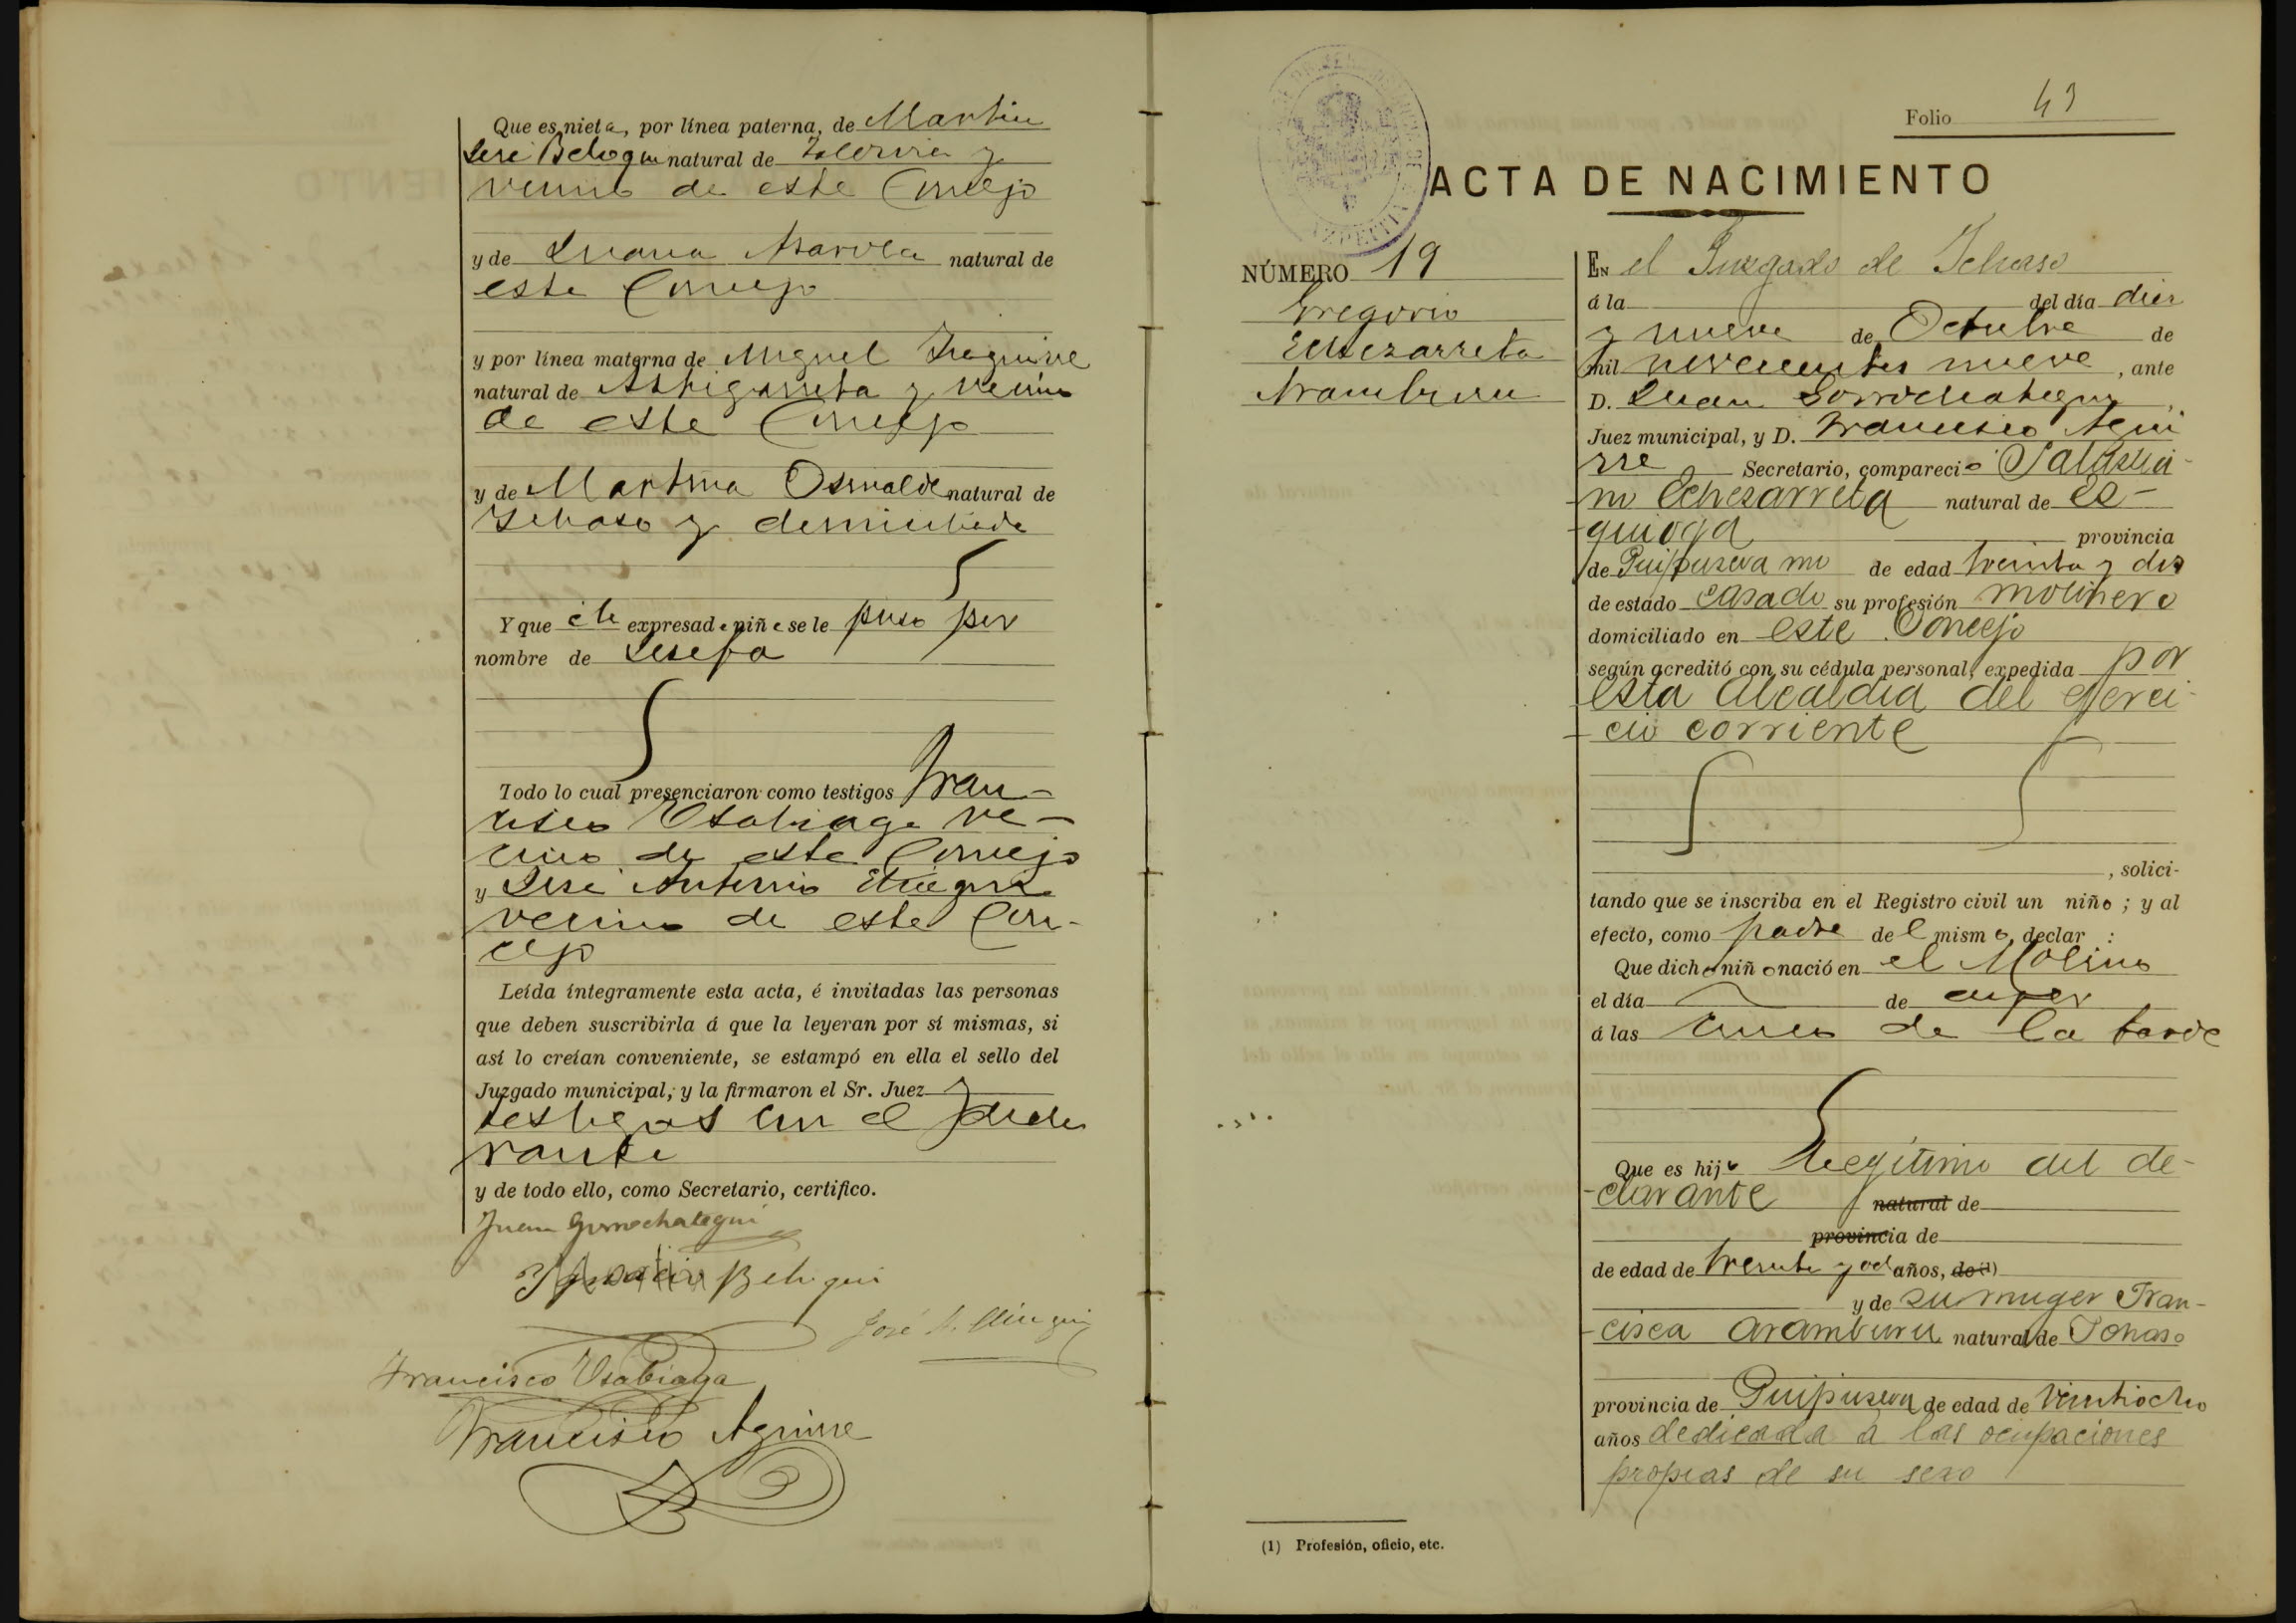 Que es nieta, por línea paterna, de Martin
José Beloqui natural de y
vecino de este Concejo
y de Juana natural de
este Concejo
y por línea materna de Miguel Izaguirre
natural de Astigarreta y vecino
de este Concejo
y de Martina natural de
Ichaso y domiciliada
Y que expresad niñ se le puso por
nombre de Josefa
Todo lo cual presenciaron como testigos Fran-
cisco Usabiaga ve-
cino de este Concejo
y José Antonio
vecino de este Con-
cejo
Leída íntegramente esta acta, é invitadas las personas
que deben suscribirla á que la leyeran por sí mismas, si
así lo creían conveniente, se estampó en ella el sello del
Juzgado municipal; y la firmaron el Sr. Juez y
testigos con el decla
rante
y de todo ello, como Secretario, certifico.
Juan Gorrochategui
Ignacio Beloqui
José A.
Francisco Usabiaga
Francisco Aguirre
Folio 43
ACTA DE NACIMIENTO
AZPEITIA
NÚMERO 19
Gregorio
Echezarreta
Aramburu
EN el Juzgado de Ichaso
á la del día diez
y nueve de Octubre de
mil novecientos nueve, ante
D. Juan Gorrochategui,
Juez municipal, y D. Francisco Agui
rre Secretario, compareció
Echezarreta natural de Es-
quioga provincia
de Guipuscoa de edad treinta y dos
de estado casado su profesión molinero
domiciliado en este Concejo
según acreditó con su cédula personal, expedida por
esta alcaldia del ejerci-
cio corriente
, solici-
tando que se inscriba en el Registro civil un niño; y al
efecto, como padre del mismo, declar :
Que dicho niño nació en el Molino
el día de ayer
á las cinco de la tarde
Que es hijo legitimo del de-
clarante natural de
provincia de
de edad de treinta y dos años, de (1)
y de su muger Fran-
cisca Aramburu natural de Ichaso
provincia de Guipuscoa de edad de veintiocho
años dedicada a las ocupaciones
propias de su sexo
(1) Profesión, oficio, etc.